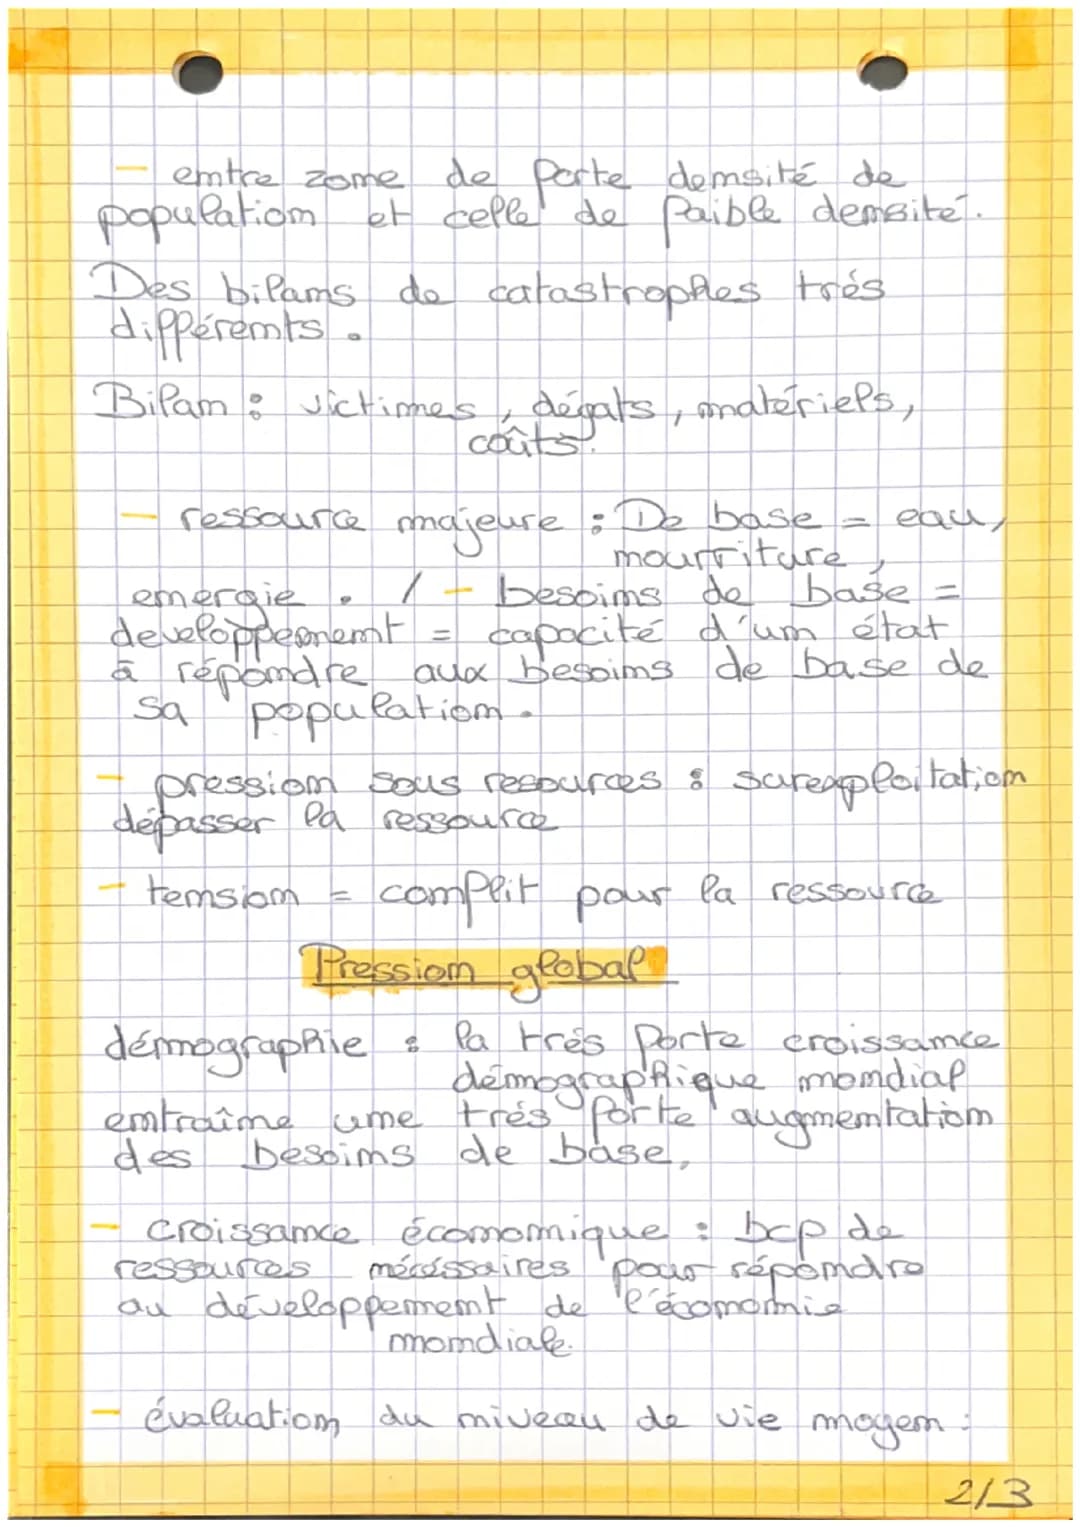 - entre zone de forte densité de
population et celle de faible densité.
Des bilans de catastrophes trés
différents.
Bilan : victimes, dégats, matériels,
coûts.
- ressource majeure : De base = eau,
nourriture,
energie. / - besoins de base =
developpement = capacité d'un état
à répondre aux besoins de base de
sa population.
- pression sous resources : surexploitation
dépasser la ressource
- tension = conflit pour la ressource
Pression global
démographie : la trés forte croissance
démographique mondial
entraîne une trés forte augmentation
des besoins de base,
- croissance économique : bcp de
ressources nécéssaires pour répondre
au développement de l'économie
mondiale.
- évaluation du niveau de vie moyen :
2/3